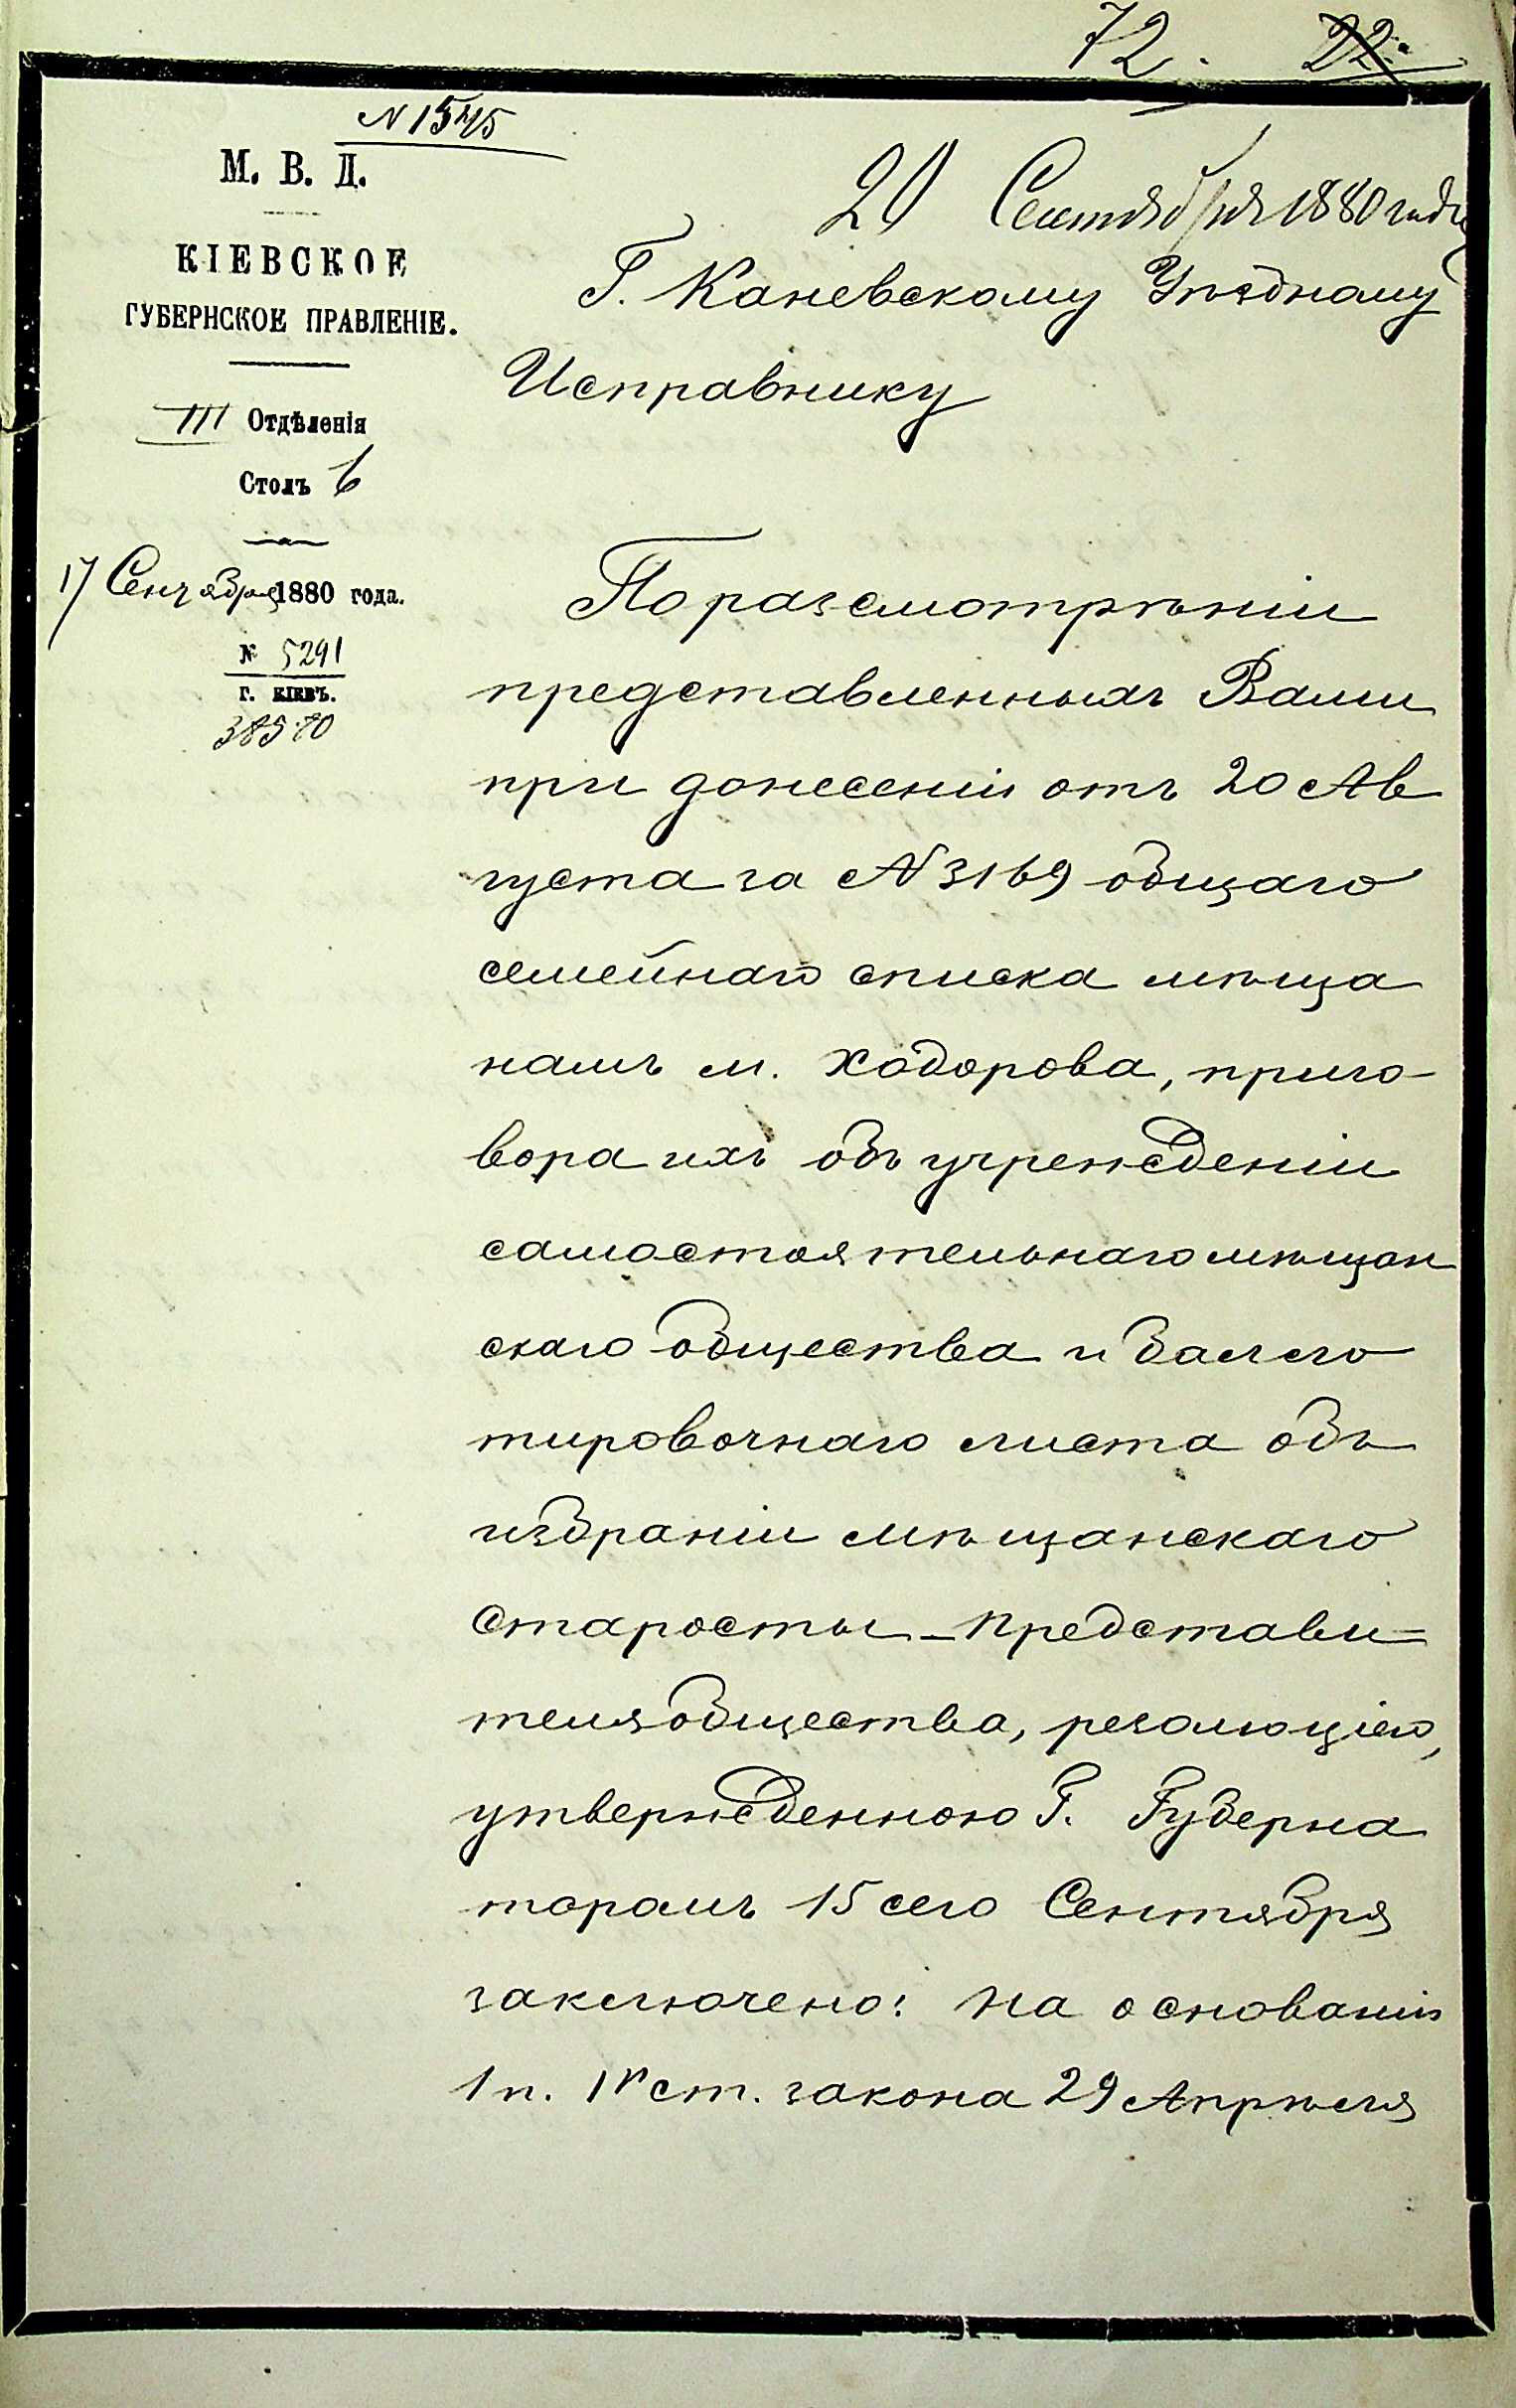 72. 22
N 1545
М. В. Д.
КІЕВСКОЕ
ГУБЕРНСКОЕ ПРАВЛЕНІЕ.
III Отдѣленія
Столъ 6
17 Сентября 1880 года.
№ 5291
Г. КІЕВЪ.
20 Сентября 1880 года
Г. Каневскому Уѣздному
Исправнику
По разсмотрѣніи
представленныхъ Вами
при донесеніи отъ 20 Ав
густа за N 3169 общаго
семейнаго списка мѣща
намъ м. Ходорова, приго-
вора ихъ объ учрежденіи
самостоятельнаго мѣщан
скаго общества и баллло
тировочнаго листа объ
избраніи мѣщанскаго
старосты - представи=
теля общества, резолюціею,
утвержденною Г. Губерна
торомъ 15 сего Сентября
заключено: на основаніи
1 п. 1й ст. закона 29 Апрѣля